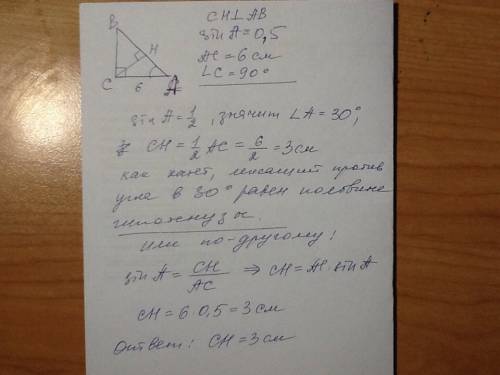 B
H
C 6 A
CH⊥AB
sin A = 0,5
AC = 6 см
∠C = 90°
sin A = 1/2, значит ∠A = 30°,
CH = 1/2 AC = 6/2 = 3 см
как катет, лежащий против
угла в 30° равен половине
гипотенузы.
или по-другому:
sin A = CH/AC ⇒ CH = AC · sin A
CH = 6 · 0,5 = 3 см
Ответ: CH = 3 см